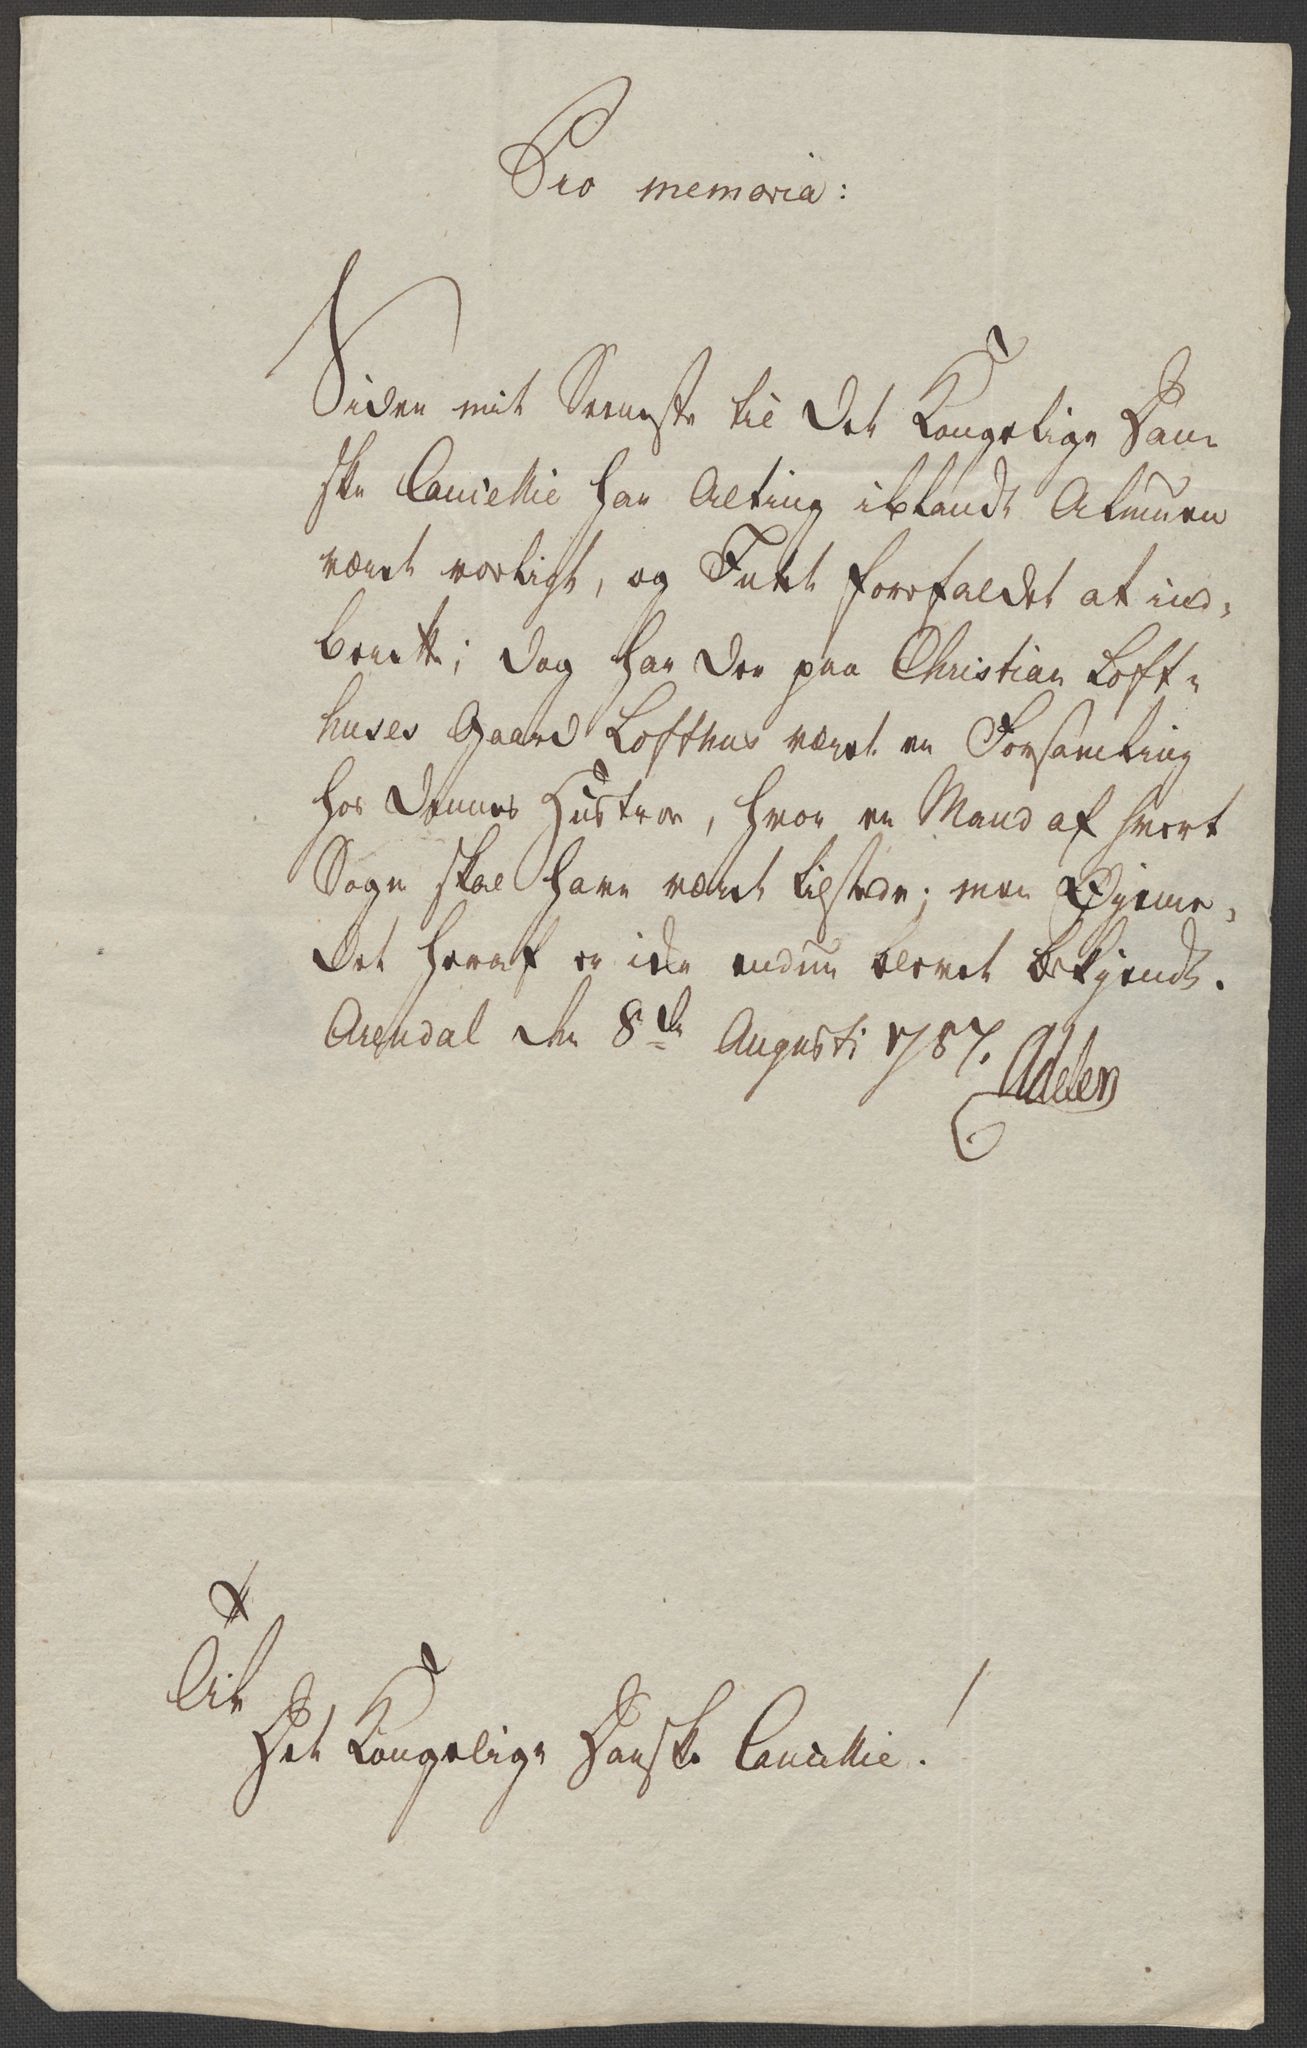 Pro memoria:
Siden mit Seeneste til Det Kongelige Dan-
ske Cancellie har Alting iblandt Almuen
været roeligt, og Intet forefaldet at ind-
berette; dog har der paa Christian Loft-
huses Gaard Lofthus været en Forsamling
hos dennes Hustroe, hvor en Mand af hvert
Sogn skal have været tilstede; men Øyeme-
det heraf er ide endnu blevet bekjendt.
Arendal den 8de Augusti 1787. Adeler
Til
Det Kongelige Danske Cancellie!